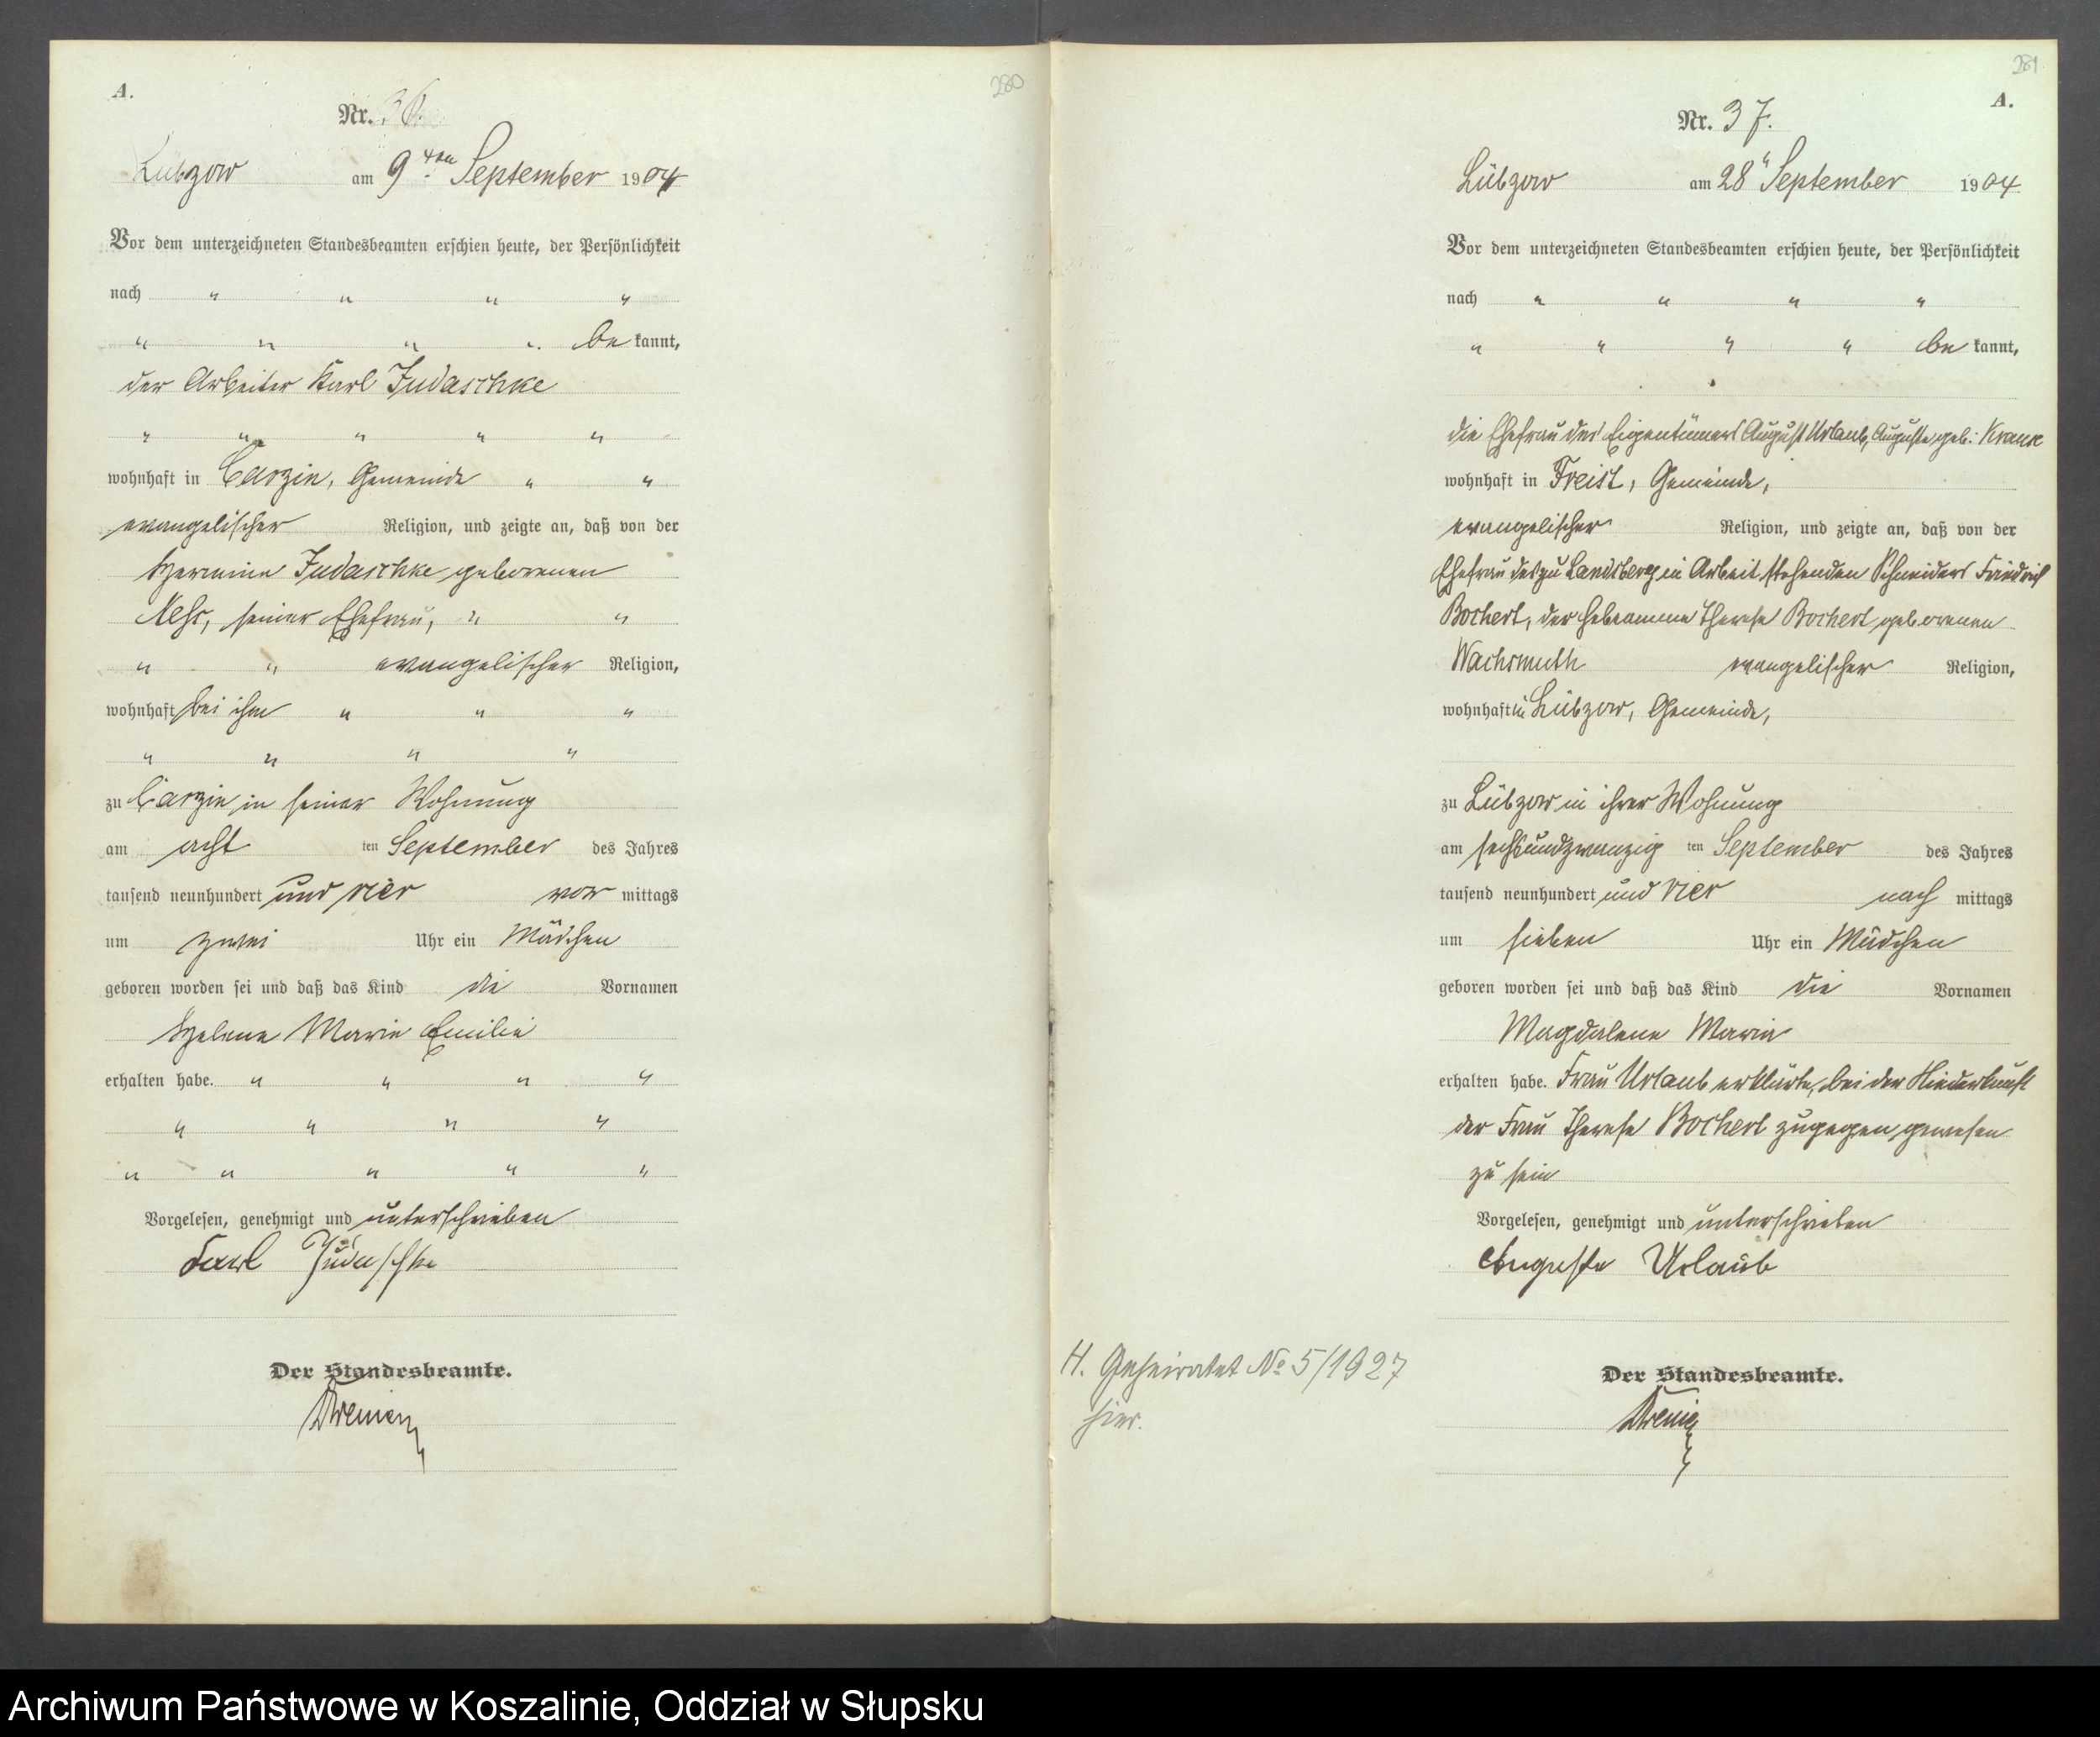 280
A.
Nr. 36.
Lübzow am 9ten September 1904
Vor dem unterzeichneten Standesbeamten erschien heute, der Persönlichkeit
nach " " " "
" " " " be kannt,
der Arbeiter Karl Judaschke
" " " " "
wohnhaft in Carzin, Gemeinde " "
evangelischer Religion, und zeigte an, daß von der
Hermine Judaschke geborenen
seiner Ehefrau, " "
" " evangelischer Religion,
wohnhaft bei ihm " " "
" " " "
zu Carzin in seiner Wohnung
am acht ten September des Jahres
tausend neunhundert und vier vor mittags
um zwei Uhr ein Mädchen
geboren worden sei und daß das Kind die Vornamen
Helene Marie Emilie
erhalten habe. " " " "
" " " "
" " " " "
Vorgelesen, genehmigt und unterschrieben
Karl Judaschke
Der Standesbeamte.
281
A.
Nr. 37.
Lübzow am 28" September 1904
Vor dem unterzeichneten Standesbeamten erschien heute, der Persönlichkeit
nach " " " "
" " " " be kannt,
die Ehefrau des Eigentümers August Urlaub, Auguste geb: Krause
wohnhaft in Freist, Gemeinde,
evangelischer Religion, und zeigte an, daß von der
Ehefrau des zu Landsberg in Arbeit stehenden Schneiders Friedrich
Bochert, der Hebeamme Therese Bochert geborenen
Wachsmuth evangelischer Religion,
wohnhaft in Lübzow, Gemeinde,
zu Lübzow in ihrer Wohnung
am sechsundzwanzig ten September des Jahres
tausend neunhundert und vier nach mittags
um sieben Uhr ein Mädchen
geboren worden sei und daß das Kind die Vornamen
Magdalene Marie
erhalten habe. Frau Urlaub erklärte, bei der Niederkunft
der Frau Therese Bochert zugegen gewesen
zu sein
Vorgelesen, genehmigt und unterschrieben
Auguste Urlaub
Der Standesbeamte.
H. Geheiratet No 5/1927
hier.
Archiwum Państwowe w Koszalinie, Oddział w Słupsku